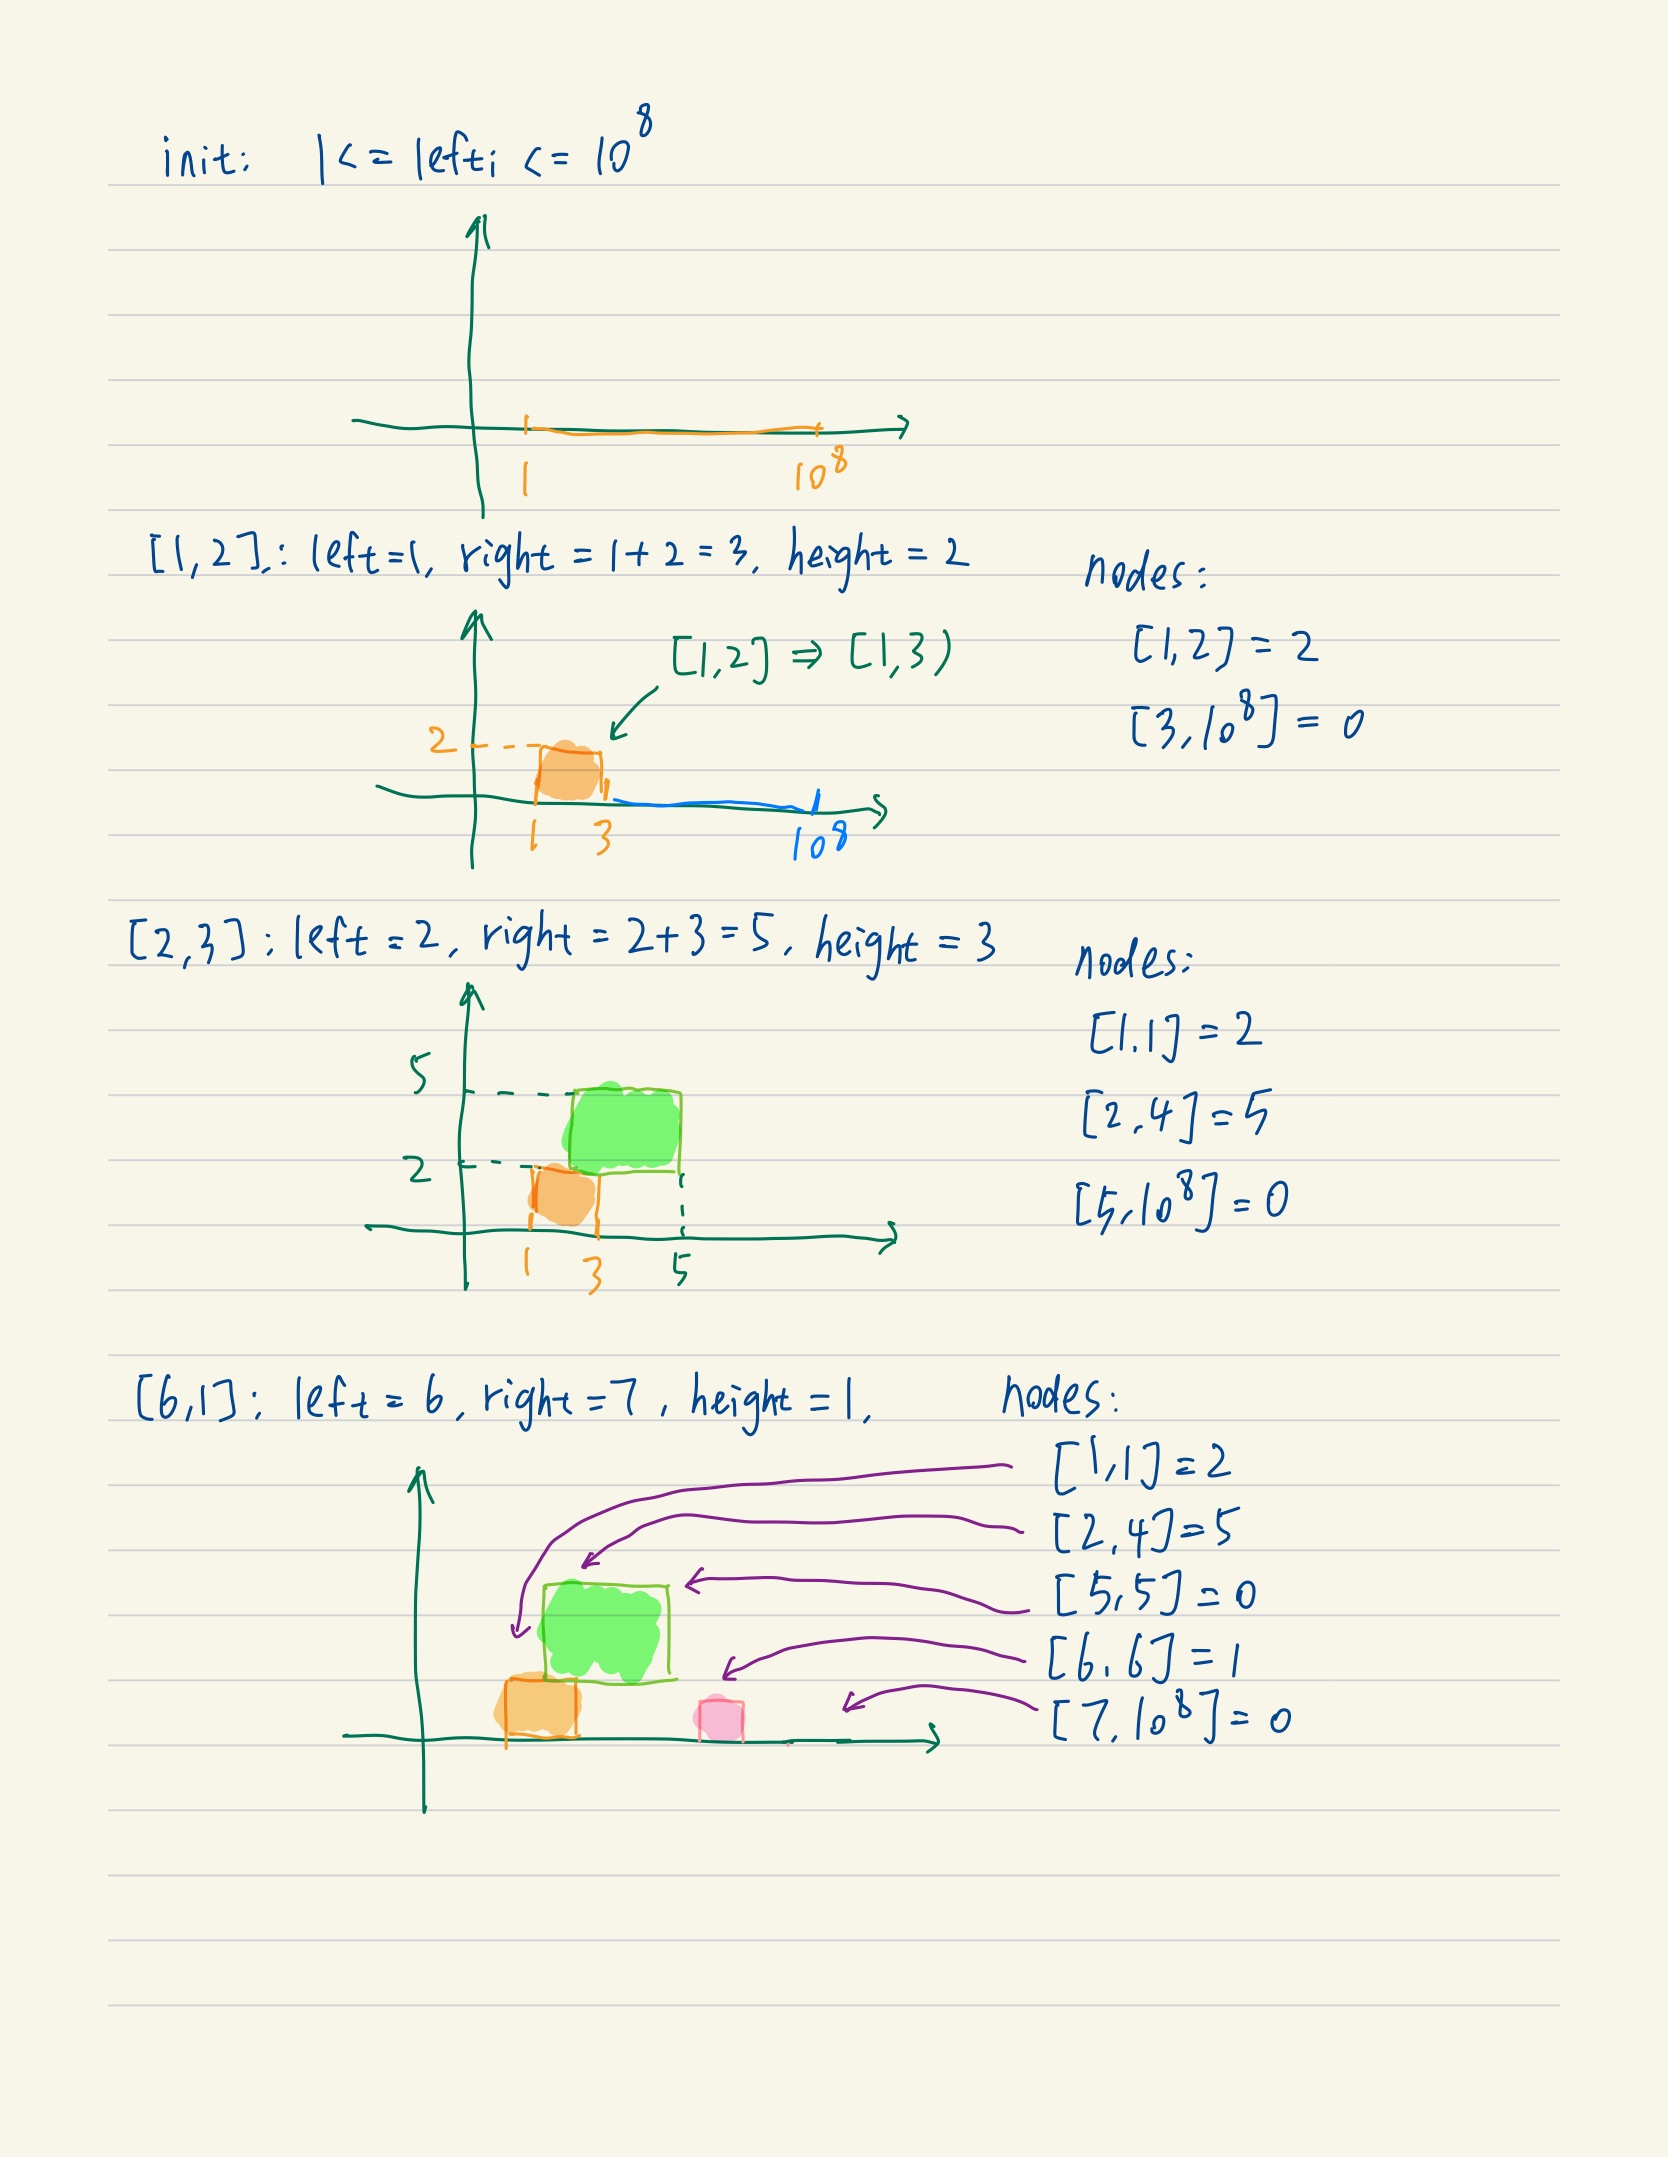 init: 1 <= lefti <= 10^8
1 10^8
[1,2],: left=1, right = 1+2 = 3, height = 2
nodes:
[1,2] ⇒ [1,3)
[1,2] = 2
[3,10^8] = 0
2
1 3 10^8
[2,3]: left = 2, right = 2+3 = 5, height = 3
nodes:
[1.1] = 2
5
[2,4] = 5
2
[5,10^8] = 0
1 3 5
[6,1]: left = 6, right = 7, height = 1,
nodes:
[1,1] = 2
[2,4] = 5
[5,5] = 0
[6,6] = 1
[7,10^8] = 0